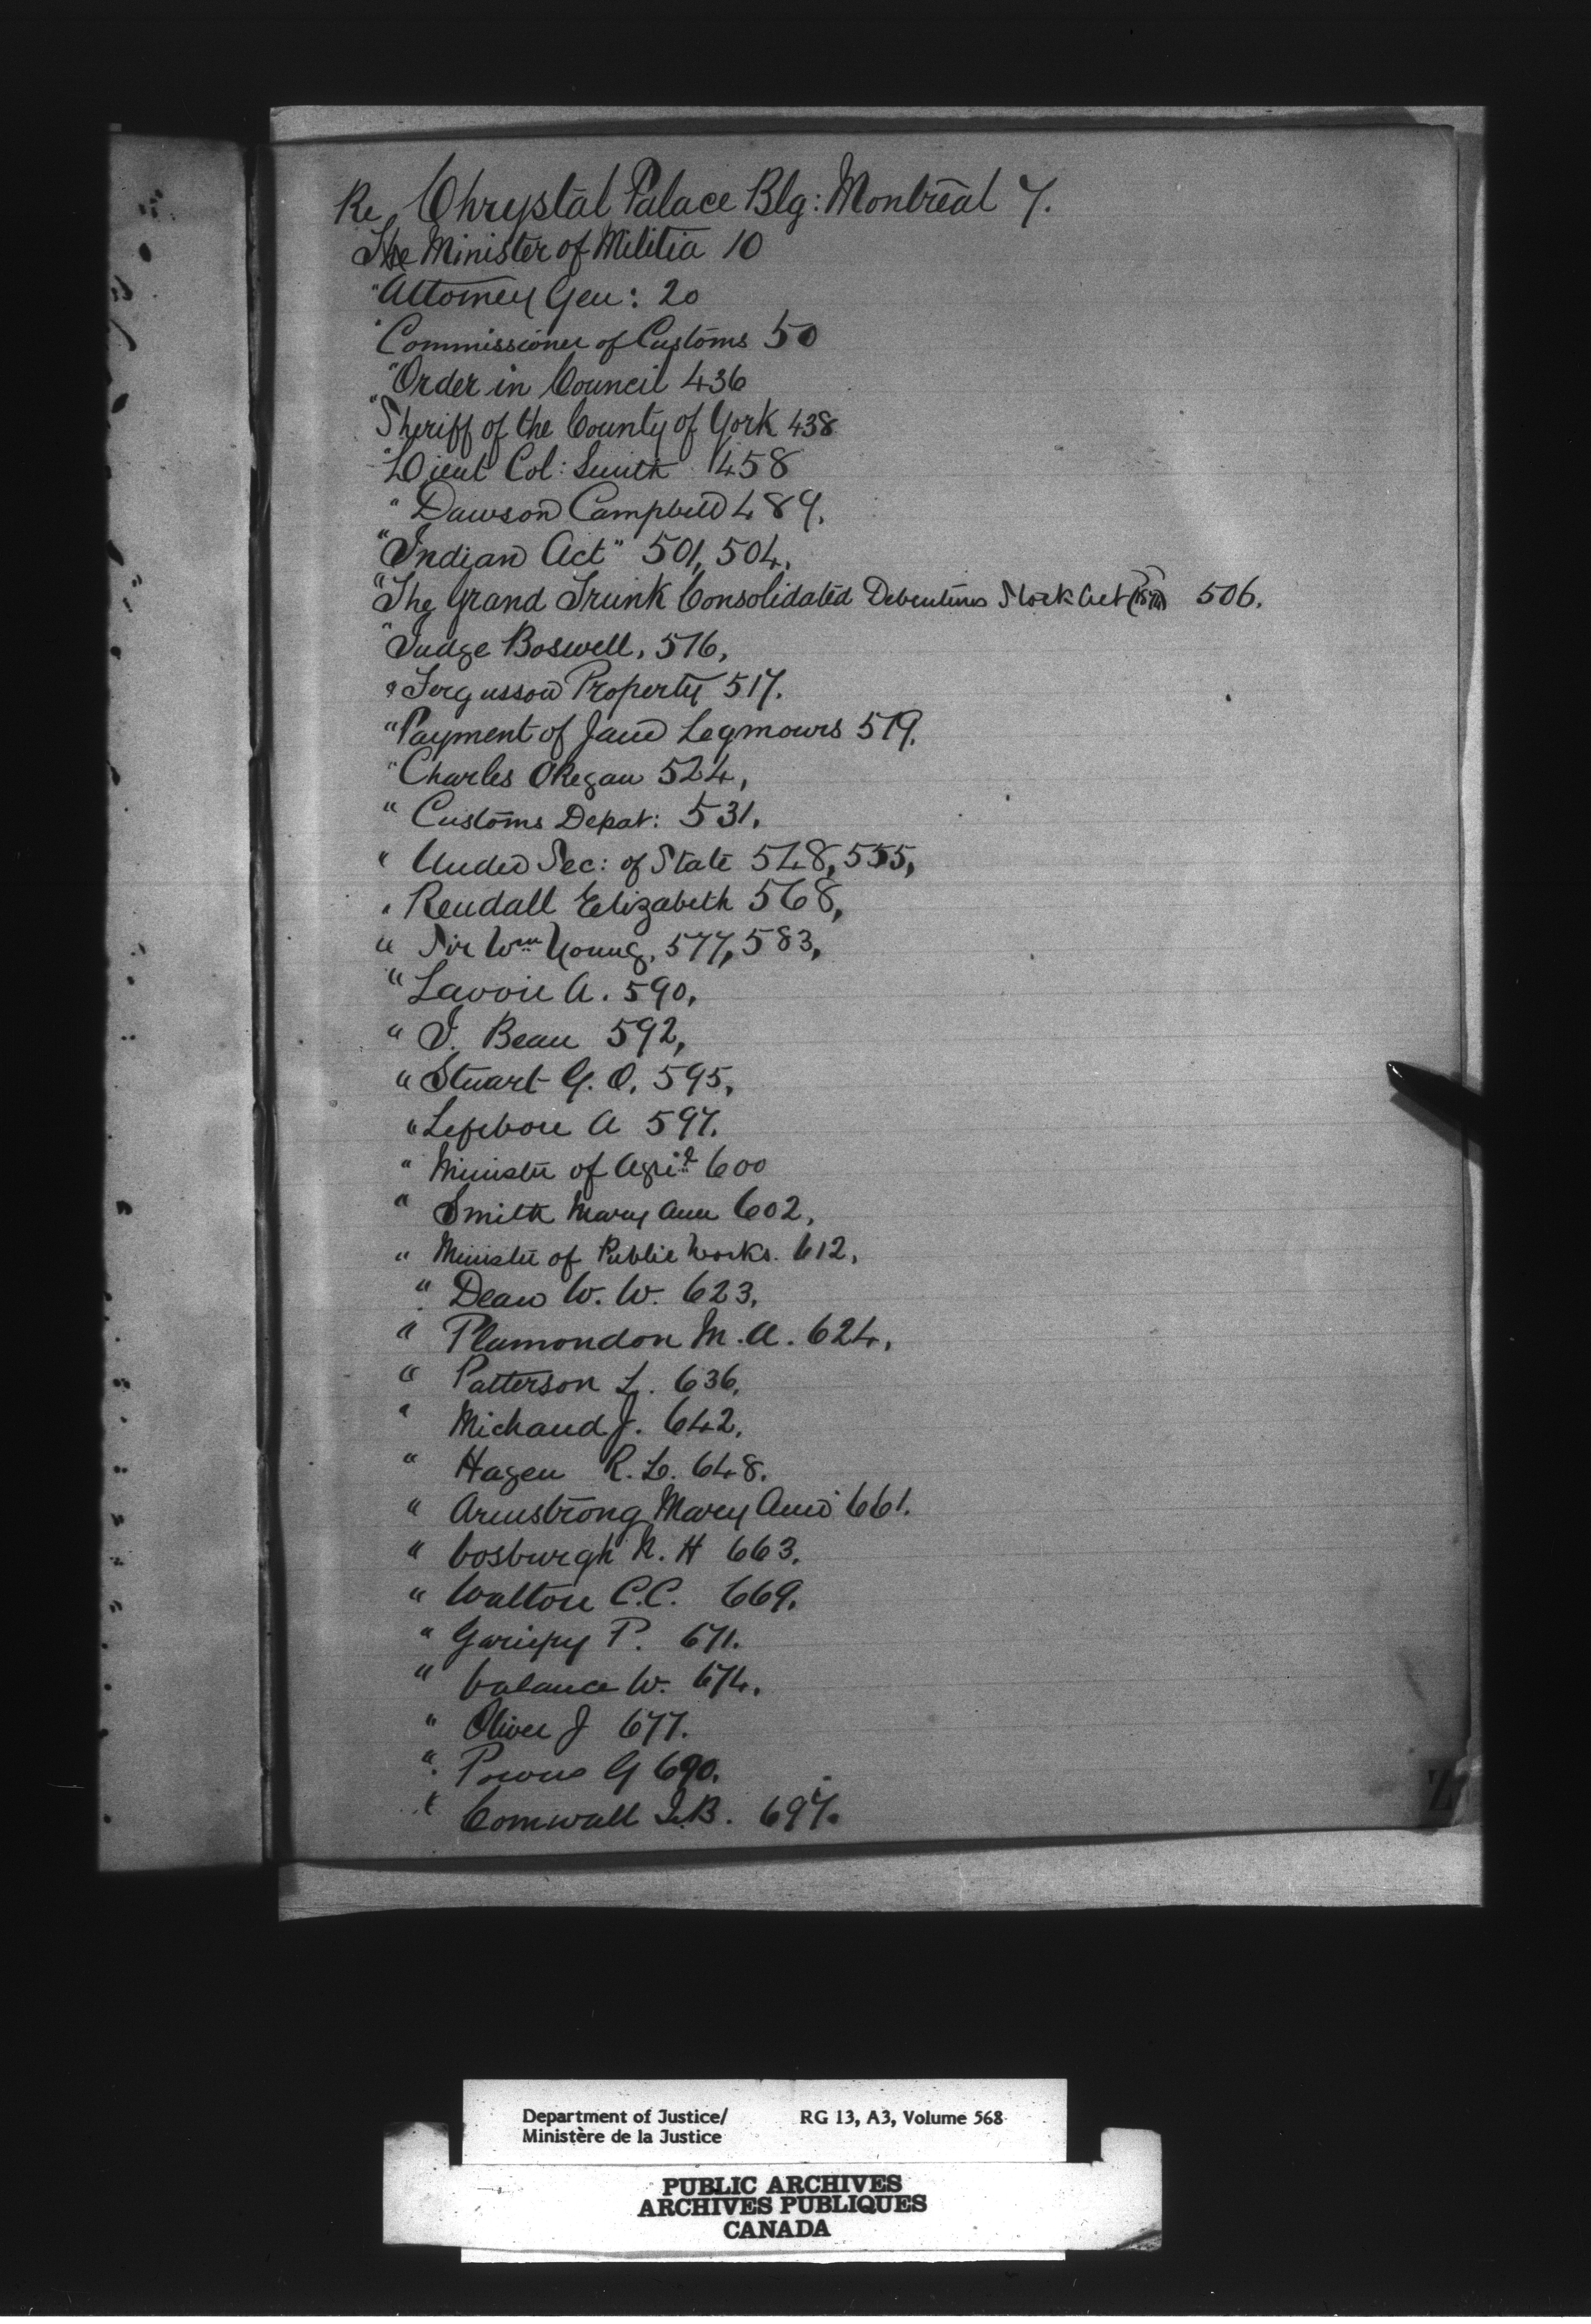 Re Chrystal Palace Blg: Montreal 7.
The Minister of Militia 10
" Attorney Gen: 20
" Commissioner of Customs 50
" Order in Council 436
" Sheriff of the County of York 438
" Lieut Col: Smith 458
" Dawson Campbell 489,
"Indian Act" 501, 504,
"The Grand Trunk Consolidated Debentures Stock Act 506.
" Judge Boswell, 516,
" Fergusson Property 517.
" Payment of Jane 519.
" Charles O'Regan 524,
" Customs Depat: 531,
" Under Sec: of State 548, 555,
" Rendall Elizabeth 568,
" Sir Wm Young, 577, 583,
" Lavoie A. 590,
" J. Bean 592,
" Stuart G. O. 595,
" Lefebvre A 597.
" Minister of Agri 600
" Smith Mary Ann 602,
" Minister of Public Works. 612,
" Dean W. W. 623,
" Plamondon M. A. 624,
" Patterson L. 636,
" Michaud J. 642,
" Hagen R. L. 648.
" Armstrong Mary Ann 661.
" Cosburgh N. H 663,
" Walton C.C. 669.
" Gariepy P. 671.
" W. 674.
" Oliver J 677.
" G 690.
" Cornwall I.B. 697.
Z
Department of Justice/ RG 13, A3, Volume 568
Ministère de la Justice
PUBLIC ARCHIVES
ARCHIVES PUBLIQUES
CANADA